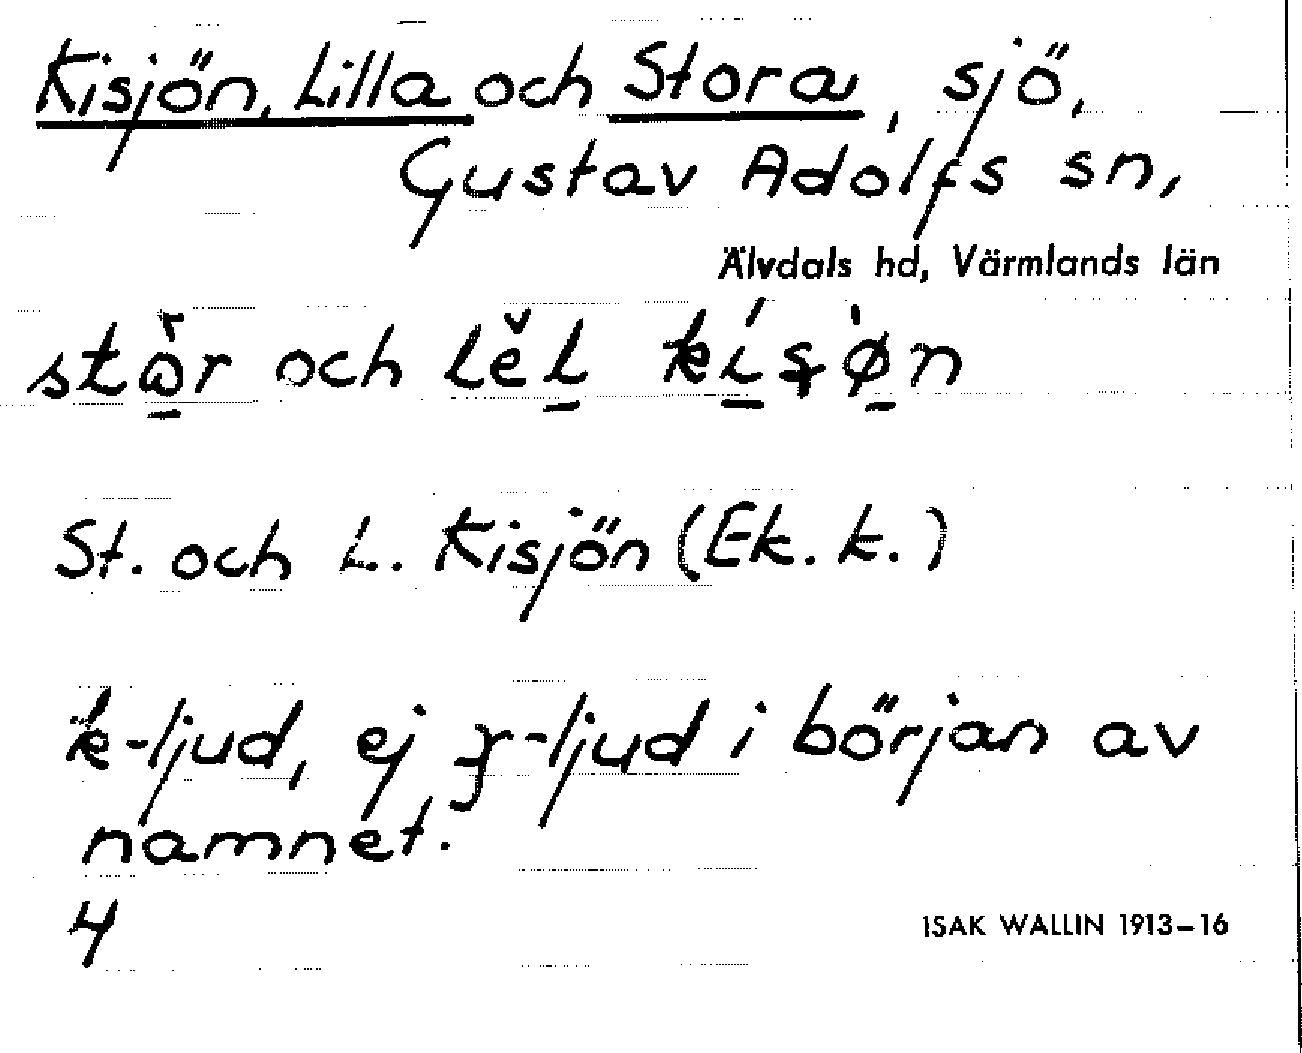 Kisjön, Lilla och Stora, sjö,
Gustav Adolfs sn,
Älvdals hd, Värmlands län
och
St. och L. Kisjön (Ek. k.)
k-ljud, ej -ljud i början av
namnet.
4
ISAK WALLIN 1913-16